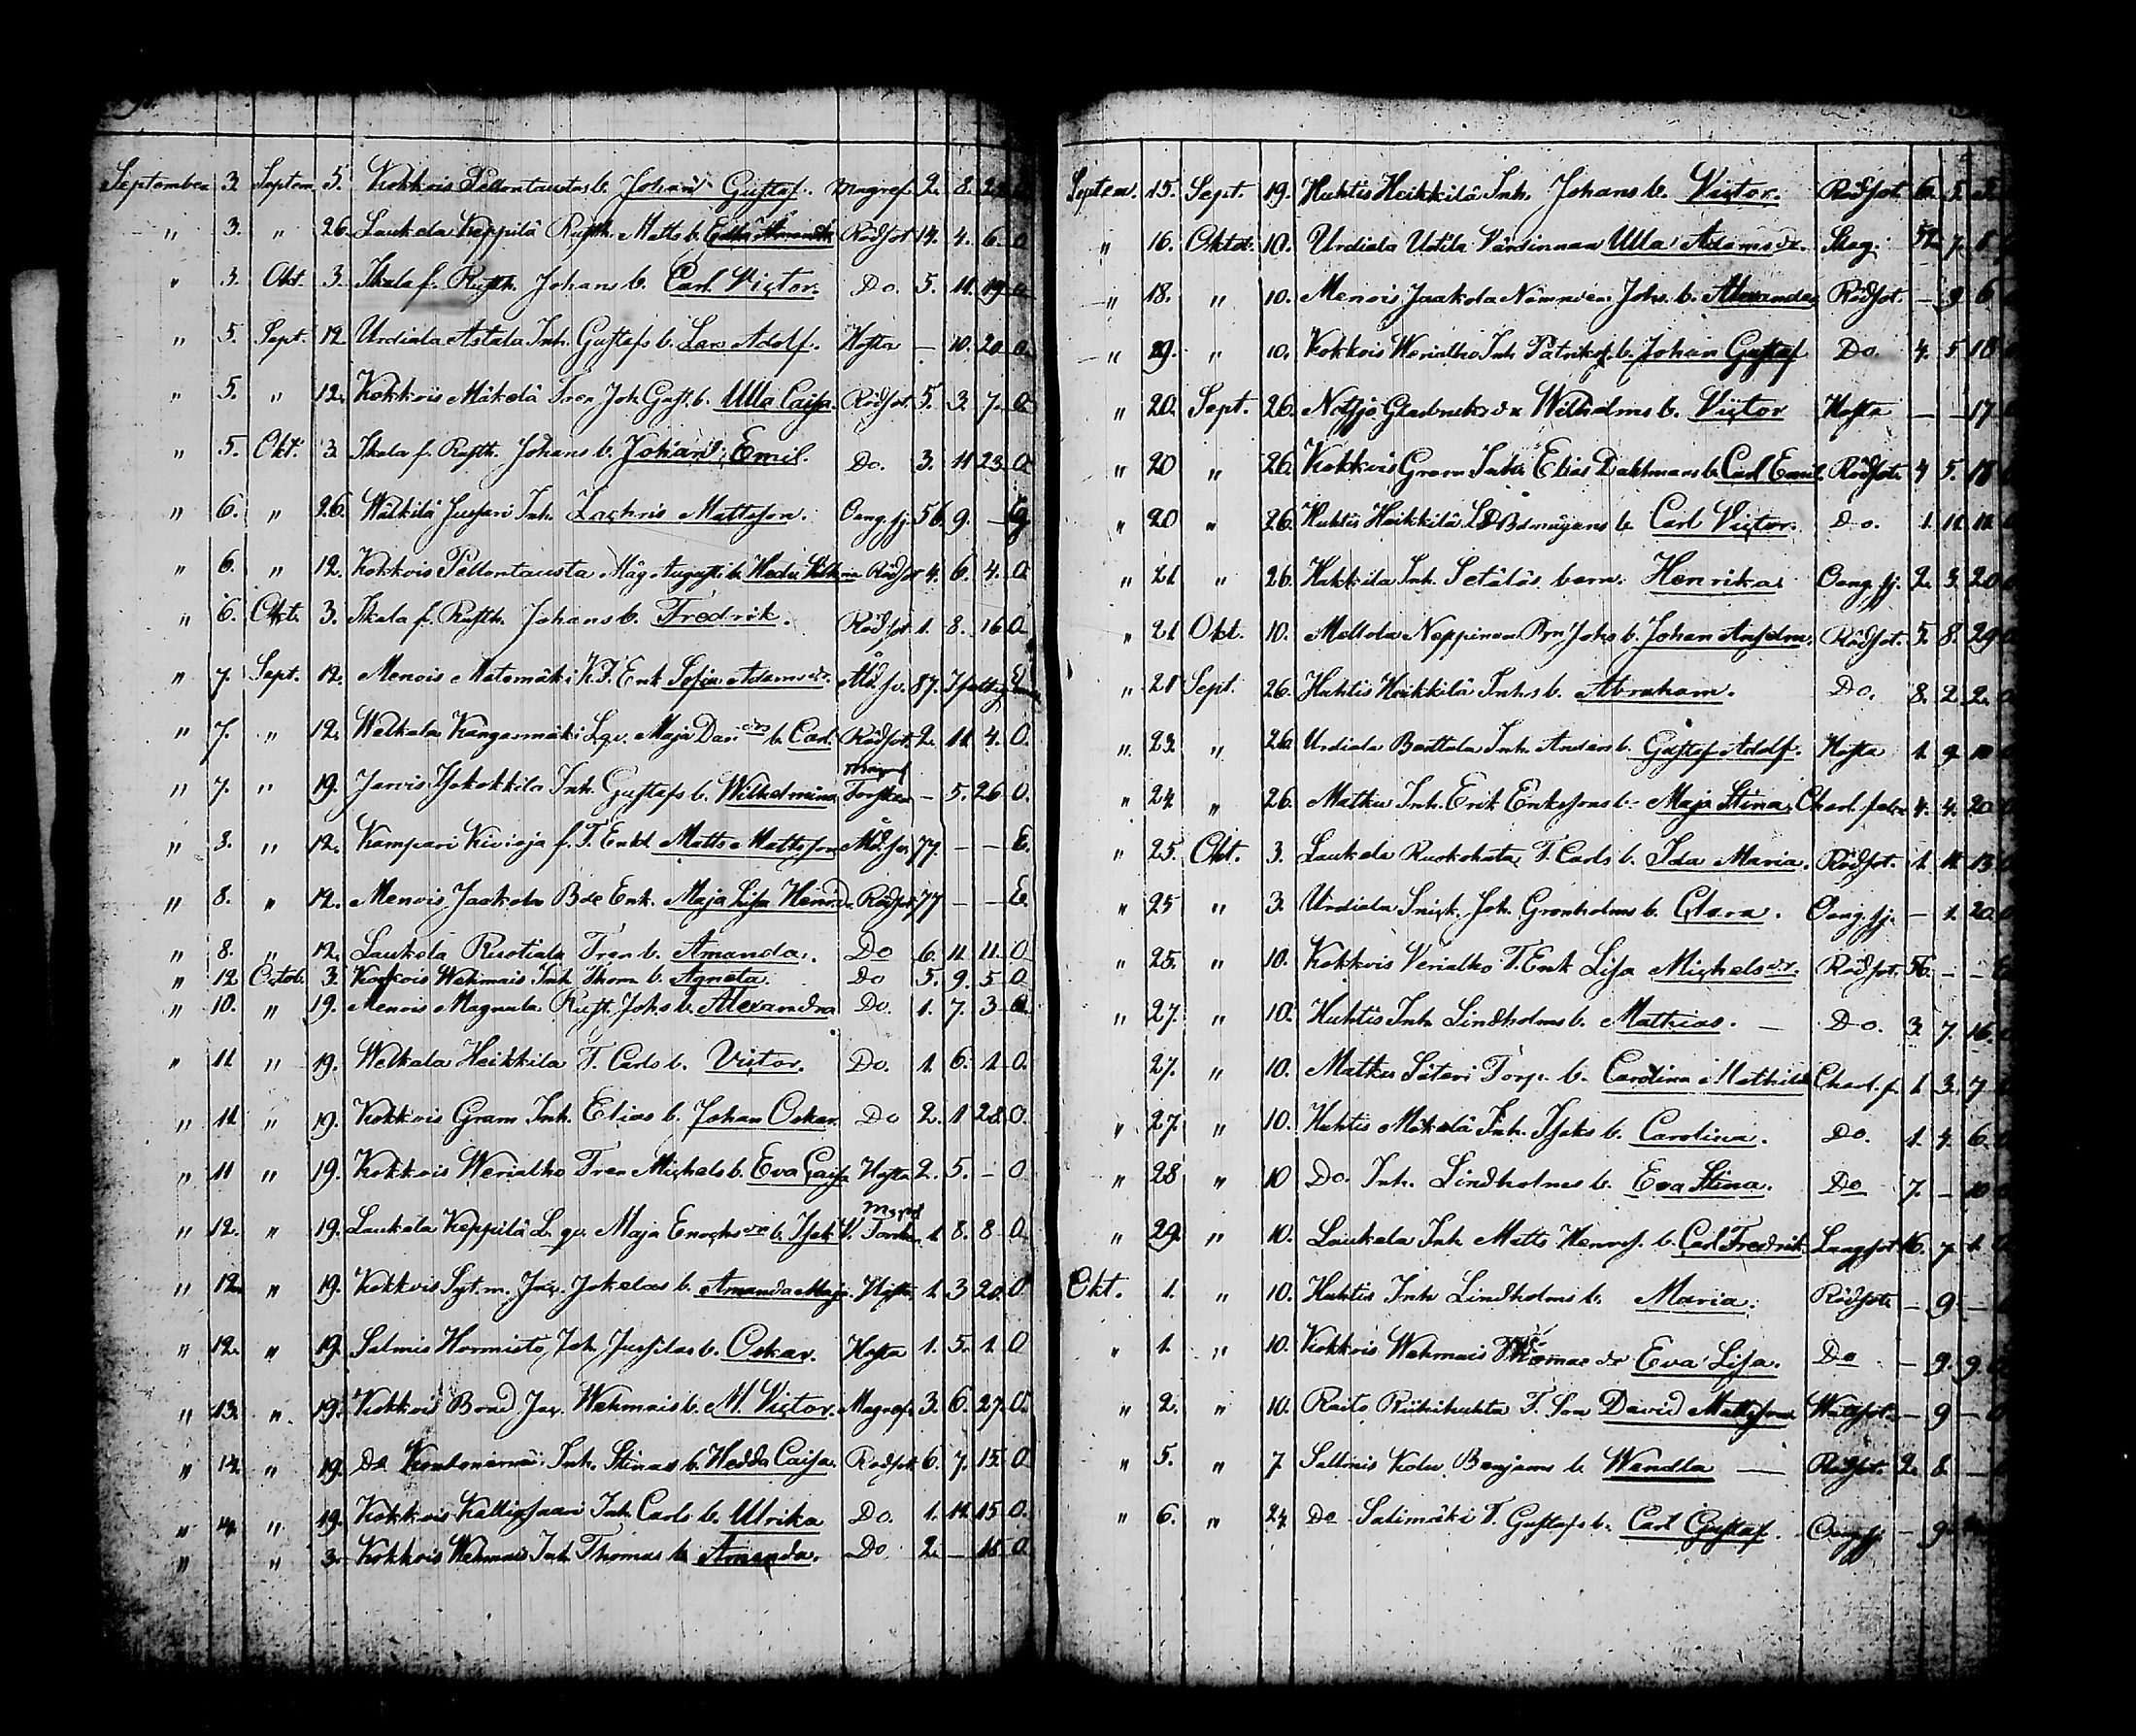 September 3. Septem. 5. Kokkois Pellontausta b. Johan Gustaf. Magref. 2. 8.
" 3. " 26. Laukela Keppilä Rusth. Matts b. Edla Amanda Rödsot 14. 4. 6. O
" 3. Okt. 3. Skala f. Rusth. Johans b. Carl Victor. Do. 5. 11. 19. O
" 5. Sept. 12 Urdiala Astala Inh. Gustafs b. Lars Adolf. Hosta — 10. 20 O.
" 5. " 12. Kokkois Mäkelä Tren Joh. Gust. b. Ulla Caisa. Rödsot. 5. 3. 7. O
" 5. Okt. 3. Skala f. Rusth. Johans b. Johan Emil. Do. 3. 11 23. O
" 6. " 26. Wälkilä Jussari Inh. Zachris Mattsson. Oäng. sj. 56 9. —
" 6. " 12. Kokkois Pellontausta Måg Augusts b. Heda Rödsot 4. 6. 4. O
" 6. Okt. 3. Skala f. Rusth. Johans b. Fredrik. Rödsot 1. 8. 16 O.
" 7. Sept. 12. Menois Matomäki K.T. Enk Sofia Adamsdr. Åld. sv. 87.
" 7. " 12. Welkala Kangasmäki Lqv. Maja Dav. drs b. Carl. Rödsot. 2. 11. 4. O.
" 7. " 19. Jarvis Isokokkila Inh. Gustafs b. Wilhelmina Torsken — 5. 26 O.
" 8. " 12. Kampari Kivioja f. T. Enkl Matts Mattsson Åld. sv. 77. — — E.
" 8. " 12. Menois Jaakola Bde Enk. Maja Lisa Henrdr. Rödsot 77 — — E.
" 8. " 12. Laukela Ruotiala Tren b. Amanda. Do 6. 11. 11. O
" 12 Octob. 3. Kokkois Wahmais Inh Thom b. Agneta. Do 5. 9. 5 O
" 10. " 19. Menois Magnula Rust. Johs b. Alexandra Do. 1. 7. 3 O.
" 11. " 19. Welkala Heikkila T. Carls b. Victor. Do. 1. 6. 1. O.
" 11. " 19. Kokkois Gram Inh. Elias b. Johan Oskar. Do 2. 1 28. O.
" 11 " 19. Kokkois Werialho Tren Michels b. Eva Caisa Hosta 2. 5. — O
" 12. " 19. Laukela Keppilä L. qv. Maja Enochsdr b. Isak V. Torsken 1. 8. 8 O.
" 12. " 19. Kokkois Syt. m. Jac. Jokelas b. Amanda Maja. Hosta. 1. 3 20. O
" 12. " 19. Salmis Hormisto Joh. Jussilas b. Oskar. Hosta 1. 5. 1. O
" 13. " 19. Kokkois Bond Jac. Wahmais b. M. Victor. Magref. 3. 6. 27. O.
" 14. " 19. Do Inh. Stinas b. Hedda Caisa. Rödsot 6. 7. 15. O
" 14. " 19. Kokkois Kalliosaari Inh. Carls b. Ulrika Do. 1. 11. 15 O.
" " 3. Kokkois Wahmais Inh. Thomas b. Amanda. Do. 2. — 11. O.
Septem. 15. Sept. 19. Huhtis Heikkilä Inh. Johans b. Victor. Rödsot 6. 5.
" 16. Oktob. 10. Urdiala Untila Värdinnan Ulla Adamsdr. Slag. 7.
" 18. " 10. Menois Jaakola Nämndem. Johs. b. Alexander Rödsot. — 9 6
" 19. " 10. Kokkois Werialho Inh Patrik b. Johan Gustaf Do. 4. 5 18
" 20. Sept. 26. Notsjö Wilhelms b. Victor Hosta — — 17
" 20 " 26. Kokkois Gram Inh. Elias Dahlmans b. Carl Emil. Rödsot. 4 5. 18
" 20 " 26. Huhtis Heikkilä b. Carl Victor. Do. 1. 11. 11.
" 21 " 26. Hukkila Inh. Setäläs barn. Henrika Oäng. sj. 2. 3. 20
" 21 Okt. 10. Mellola Neppinen Johs b. Johan Anselm. Rödsot. 5. 8. 29
" 21 Sept. 26. Huhtis Heikkilä Inhs b. Abraham. Do. 8. 2. 2.
" 23. " 26. Urdiala Benttala Inh. Anders b. Gustaf Adolf. Hosta 1. 9. 10
" 24 " 26. Matku Inh. Erik Erikssons b. Maja Stina. Charl. feber 4. 4. 20
" 25. Okt. 3. Laukela Ruokohata T. Carls b. Ida Maria. Rödsot. 1. 11. 13
" 25 " 3. Urdiala Snick. Joh. Grönholms b. Clara. Oäng. sj. — 1. 20
" 25. " 10. Kokkois Verialho T. Enk Lisa Michelsdr. Rödsot. 56. — —
" 27. " 10. Huhtis Inh. Lindholms b. Mathias. — Do. 3. 7. 16.
27. " 10. Matku Säteri Torp. b. Carolina Mathilda Charl. f. 1 3. 7
" 27. " 10. Huhtis Mäkelä Inh. Isaks b. Carolina. Do. 1. 4. 6.
" 28 " 10 Do. Inh. Lindholms b. Eva Stina. Do 7. — 10
" 29. " 10. Laukela Inh Matts Henrs. b. Carl Fredrik Lungsot 16. 7. 1.
Okt. 1. " 10. Huhtis Inh Lindholms b. Maria. Rödsot — 9. —
" 1. " 10. Kokkois Wahmais Thomas dr Eva Lisa. Do — 9. 9.
" 2. " 10. Raito Riihihuhta T. Son David Mattsson Wattsot. — 9 —
" 5. " 7 Sallmis Kolu. Benjams b. Wendla — Rödsot. 2. 8. —
" 6. " 24 Do Salimäki T. Gustafs b. Carl Gustaf. Oäng. sj — 9.